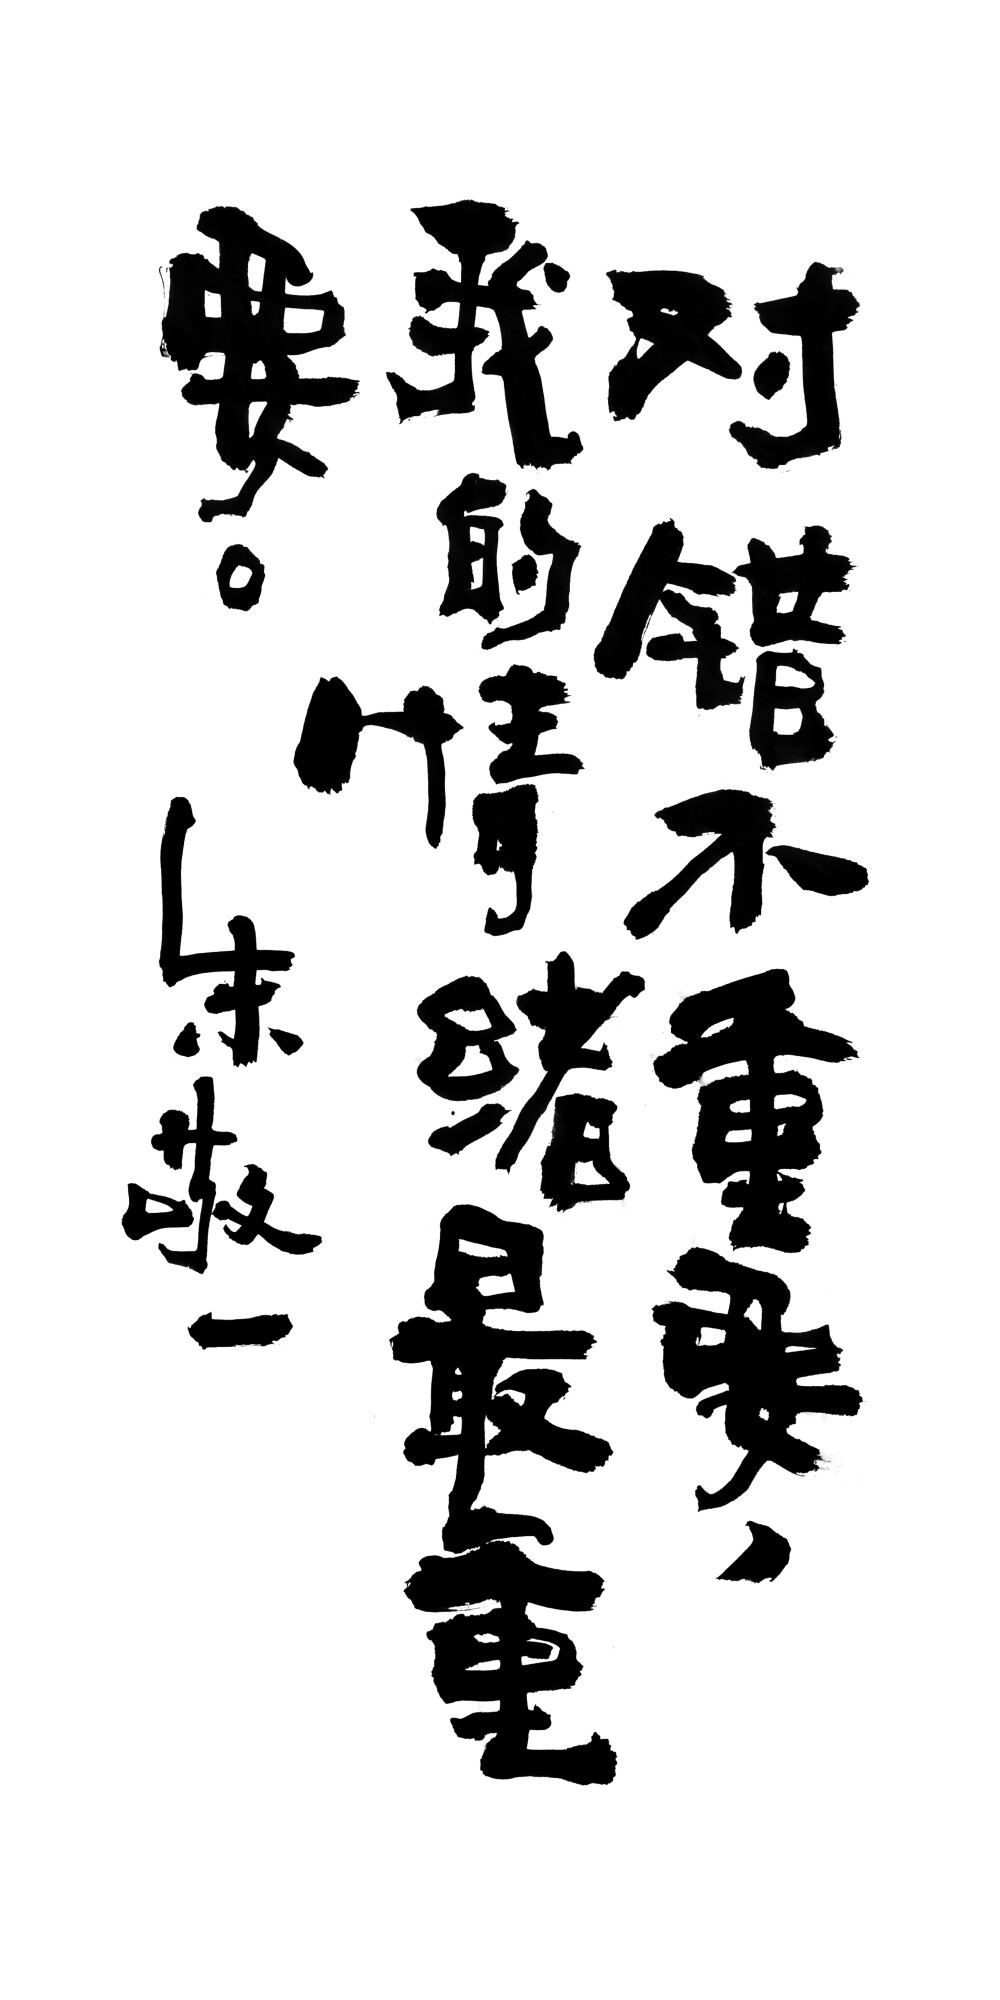 对错不重要，
我的情绪最重
要。
朱敬一